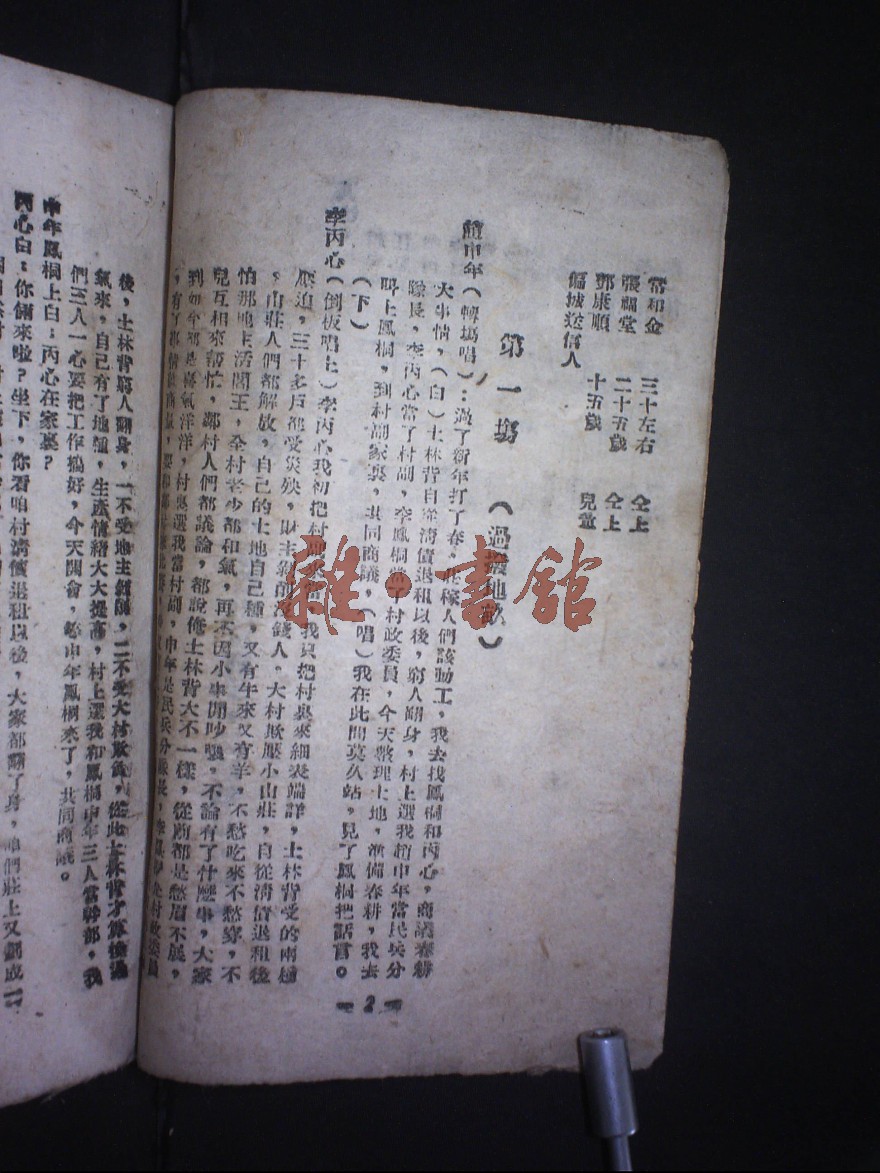 常和金　三十左右　仝上
張福堂　二十五歲　仝上
鄧康順　十五歲　兒童
偏城送信人
第一場
趙申年（轉場唱）：過了新年打了春，莊稼人們該動工，我去找鳳桐和丙心，商議春耕
大事情，（白）土林背自從清債退租以後，窮人翻身，村上選我趙申年當民兵分
隊長，李丙心當了村副，李鳳桐當了村政委員，今天整理土地，準備春耕，我去
叫上鳳桐，到村副家裏，共同商議，（唱）我在此間莫久站，見了鳳桐把話言。
（下）
李丙心（倒板唱上）李丙心我初把村副來當，我只把村裏來細表端詳，土林背受的兩種
壓迫，三十多戶都受災殃，財主剝削沒錢人。大村欺壓小山莊，自從清債退租後
，山莊人們都解放，自己的土地自己種，又有牛來又有羊，不愁吃來不愁穿，不
怕那地主活閻王，全村老少都和氣，再不因小事鬧吵嚷，不論有了什麼事，大家
兒互相來幫忙，鄰村人們都議論，都說俺土林背大不一樣，從前都是愁眉不展，
到如今都是喜氣洋洋，村裏選我當村副，申年是民兵分隊長，
，有了事情
— 2 —
後，土林背窮人翻身，一不受地主剝削，二不受大村欺負，從此土林背才算
氣來，自己有了地種，生產情緒大大提高，村上選我和鳳桐申年三人當幹部，我
們三人一心要把工作搞好，今天開會，等申年鳳桐來了，共同商議。
申年鳳桐上白：丙心在家裏？
丙心白：你倆來啦？坐下，你看咱村清債退租以後，大家都翻了身，咱們莊上又劃成一
雜·書館